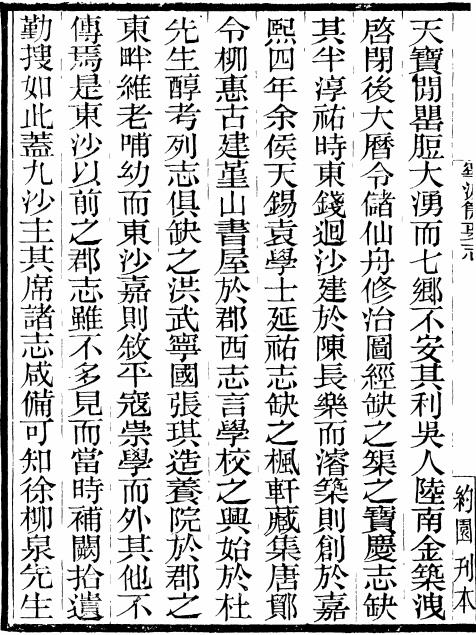 天寶開罌脰大湧而七鄉不安其利吳人陸南金築洩
啓閉後大曆令儲仙舟修治圖經缺之榘之寶慶志缺
其半淳祐時東錢迴沙建於陳長樂而濬築則創於嘉
熙四年余侯天錫袁學士延祐志缺之楓軒藏集唐鄮
令柳惠古建堇山書屋於郡西志言學校之興始於杜
先生醇考列志俱缺之洪武寧國張琪造養院於郡之
東畔維老哺幼而東沙嘉則敘平寇崇學而外其他不
傳焉是東沙以前之郡志雖不多見而當時補闕拾遺
勤搜如此蓋九沙主其席諸志咸備可知徐柳泉先生
約園刊本